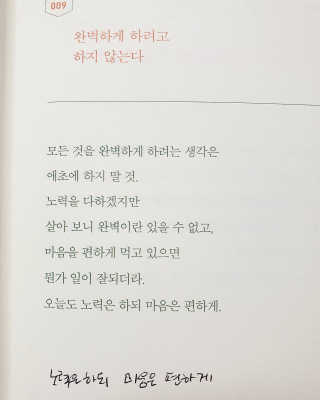 009
완벽하게 하려고
하지 않는다
모든 것을 완벽하게 하려는 생각은
애초에 하지 말 것.
노력을 다하겠지만
살아 보니 완벽이란 있을 수 없고,
마음을 편하게 먹고 있으면
뭔가 일이 잘되더라.
오늘도 노력은 하되 마음은 편하게.
노력은 하되 마음은 편하게